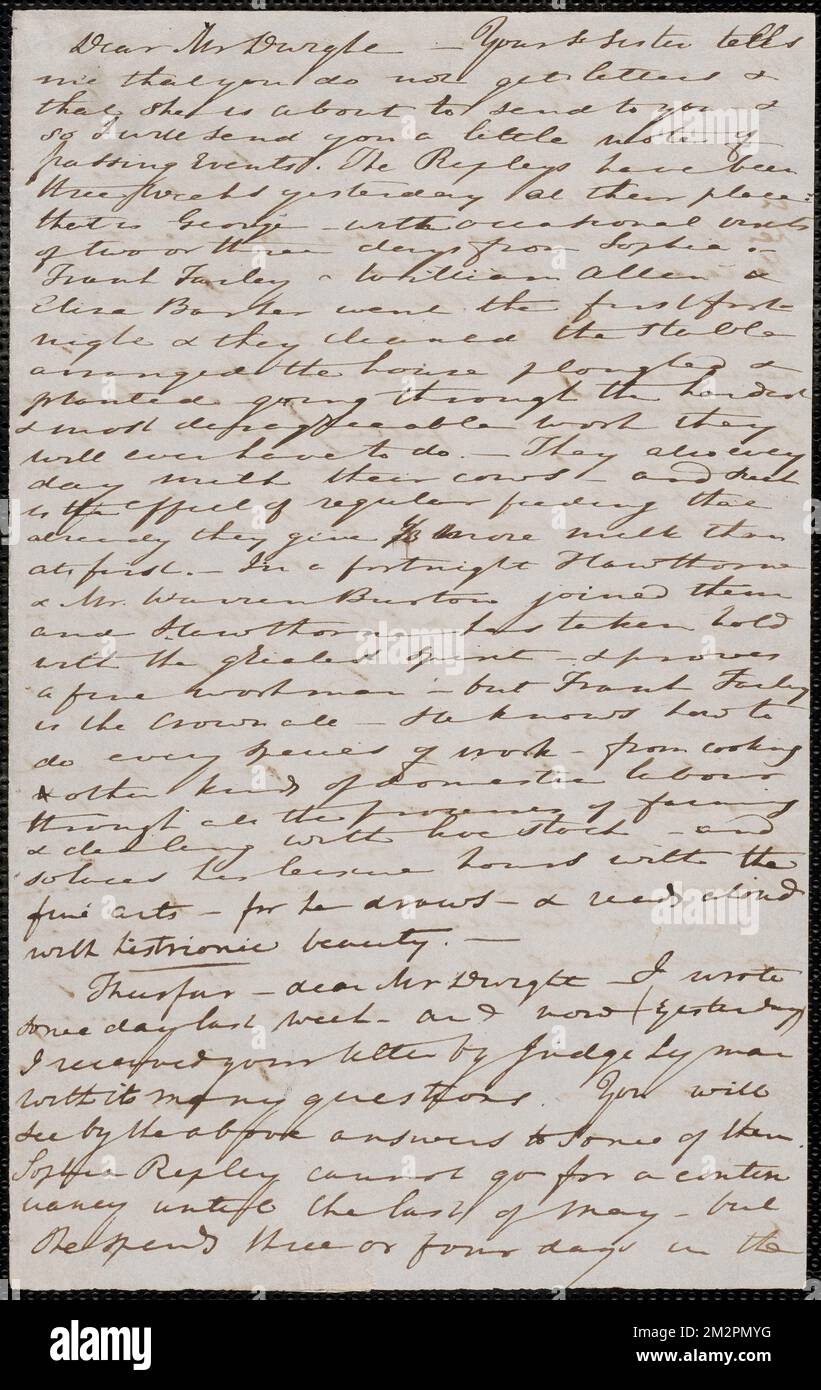 Dear Mr Dwight — Your Sister tells
me that you do not get letters &
that she is about to send to you &
so I will send you a little note of
passing Events. The Ripleys have been
three weeks yesterday at their place:
that is George – with occasional visits
of two or three days from Sophia.
Frank Farley – William Allen &
Eliza Barker went the first fort-
night & they cleaned the stable
arranged the house ploughed &
planted going through the hardest
& most disagreeable work they
will ever have to do. – They also every
day milk their cows – and such
is the effect of regular feeding that
already they give more milk than
at first. – In a fortnight Hawthorne
& Mr. Warren Burton joined them
and Hawthorne has taken hold
with the greatest spirit – & proves
a fine workman – but Frank Farley
is the crown all – He knows how to
do every species of work – from cooking
& other kinds of domestic labour
through all the processes of farming
& dealing with live stock – and
solaces his leisure hours with the
fine arts – for he draws – & reads aloud
with histrionic beauty. —
Thusfar – dear Mr Dwight – I wrote
some day last week – and now (yesterday)
I received your letter by Judge Lyman
with its many questions. You will
see by the above answers to some of them.
Sophia Ripley cannot go for a contin
uancy until the last of May – but
she spends three or four days in the
alamy
Image ID: 2M2PMYG
www.alamy.com